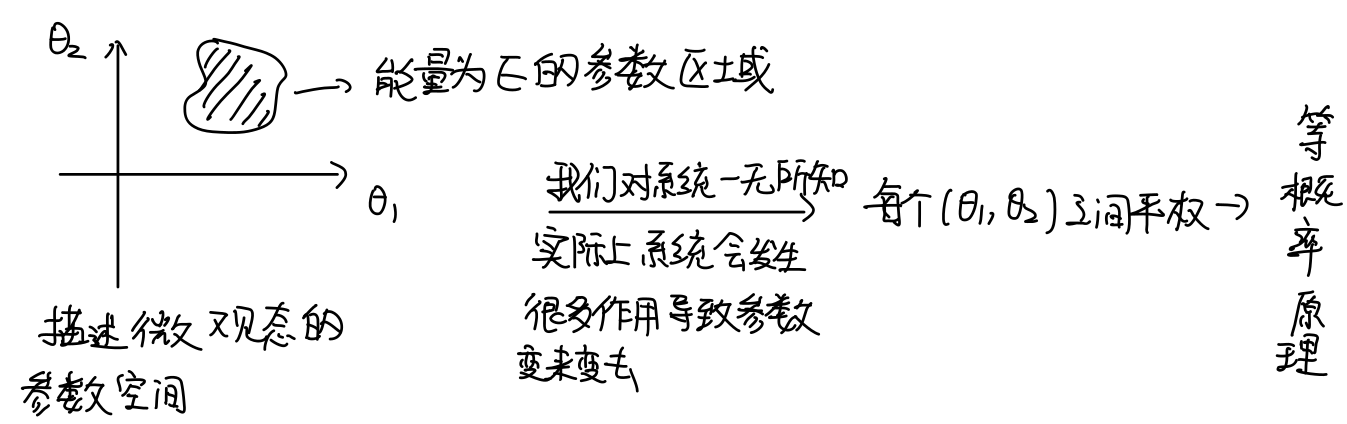 θ₂
能量为E的参数区域
θ₁
描述微观态的
参数空间
我们对系统一无所知
实际上系统会发生
很多作用导致参数
变来变去
每个(θ₁, θ₂)之间平权→
等概率原理